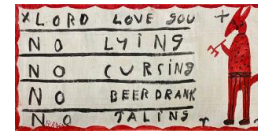 x LORD LOVE YOU +
NO LYING
NO CURSING
NO BEER DRANK
NO TALING